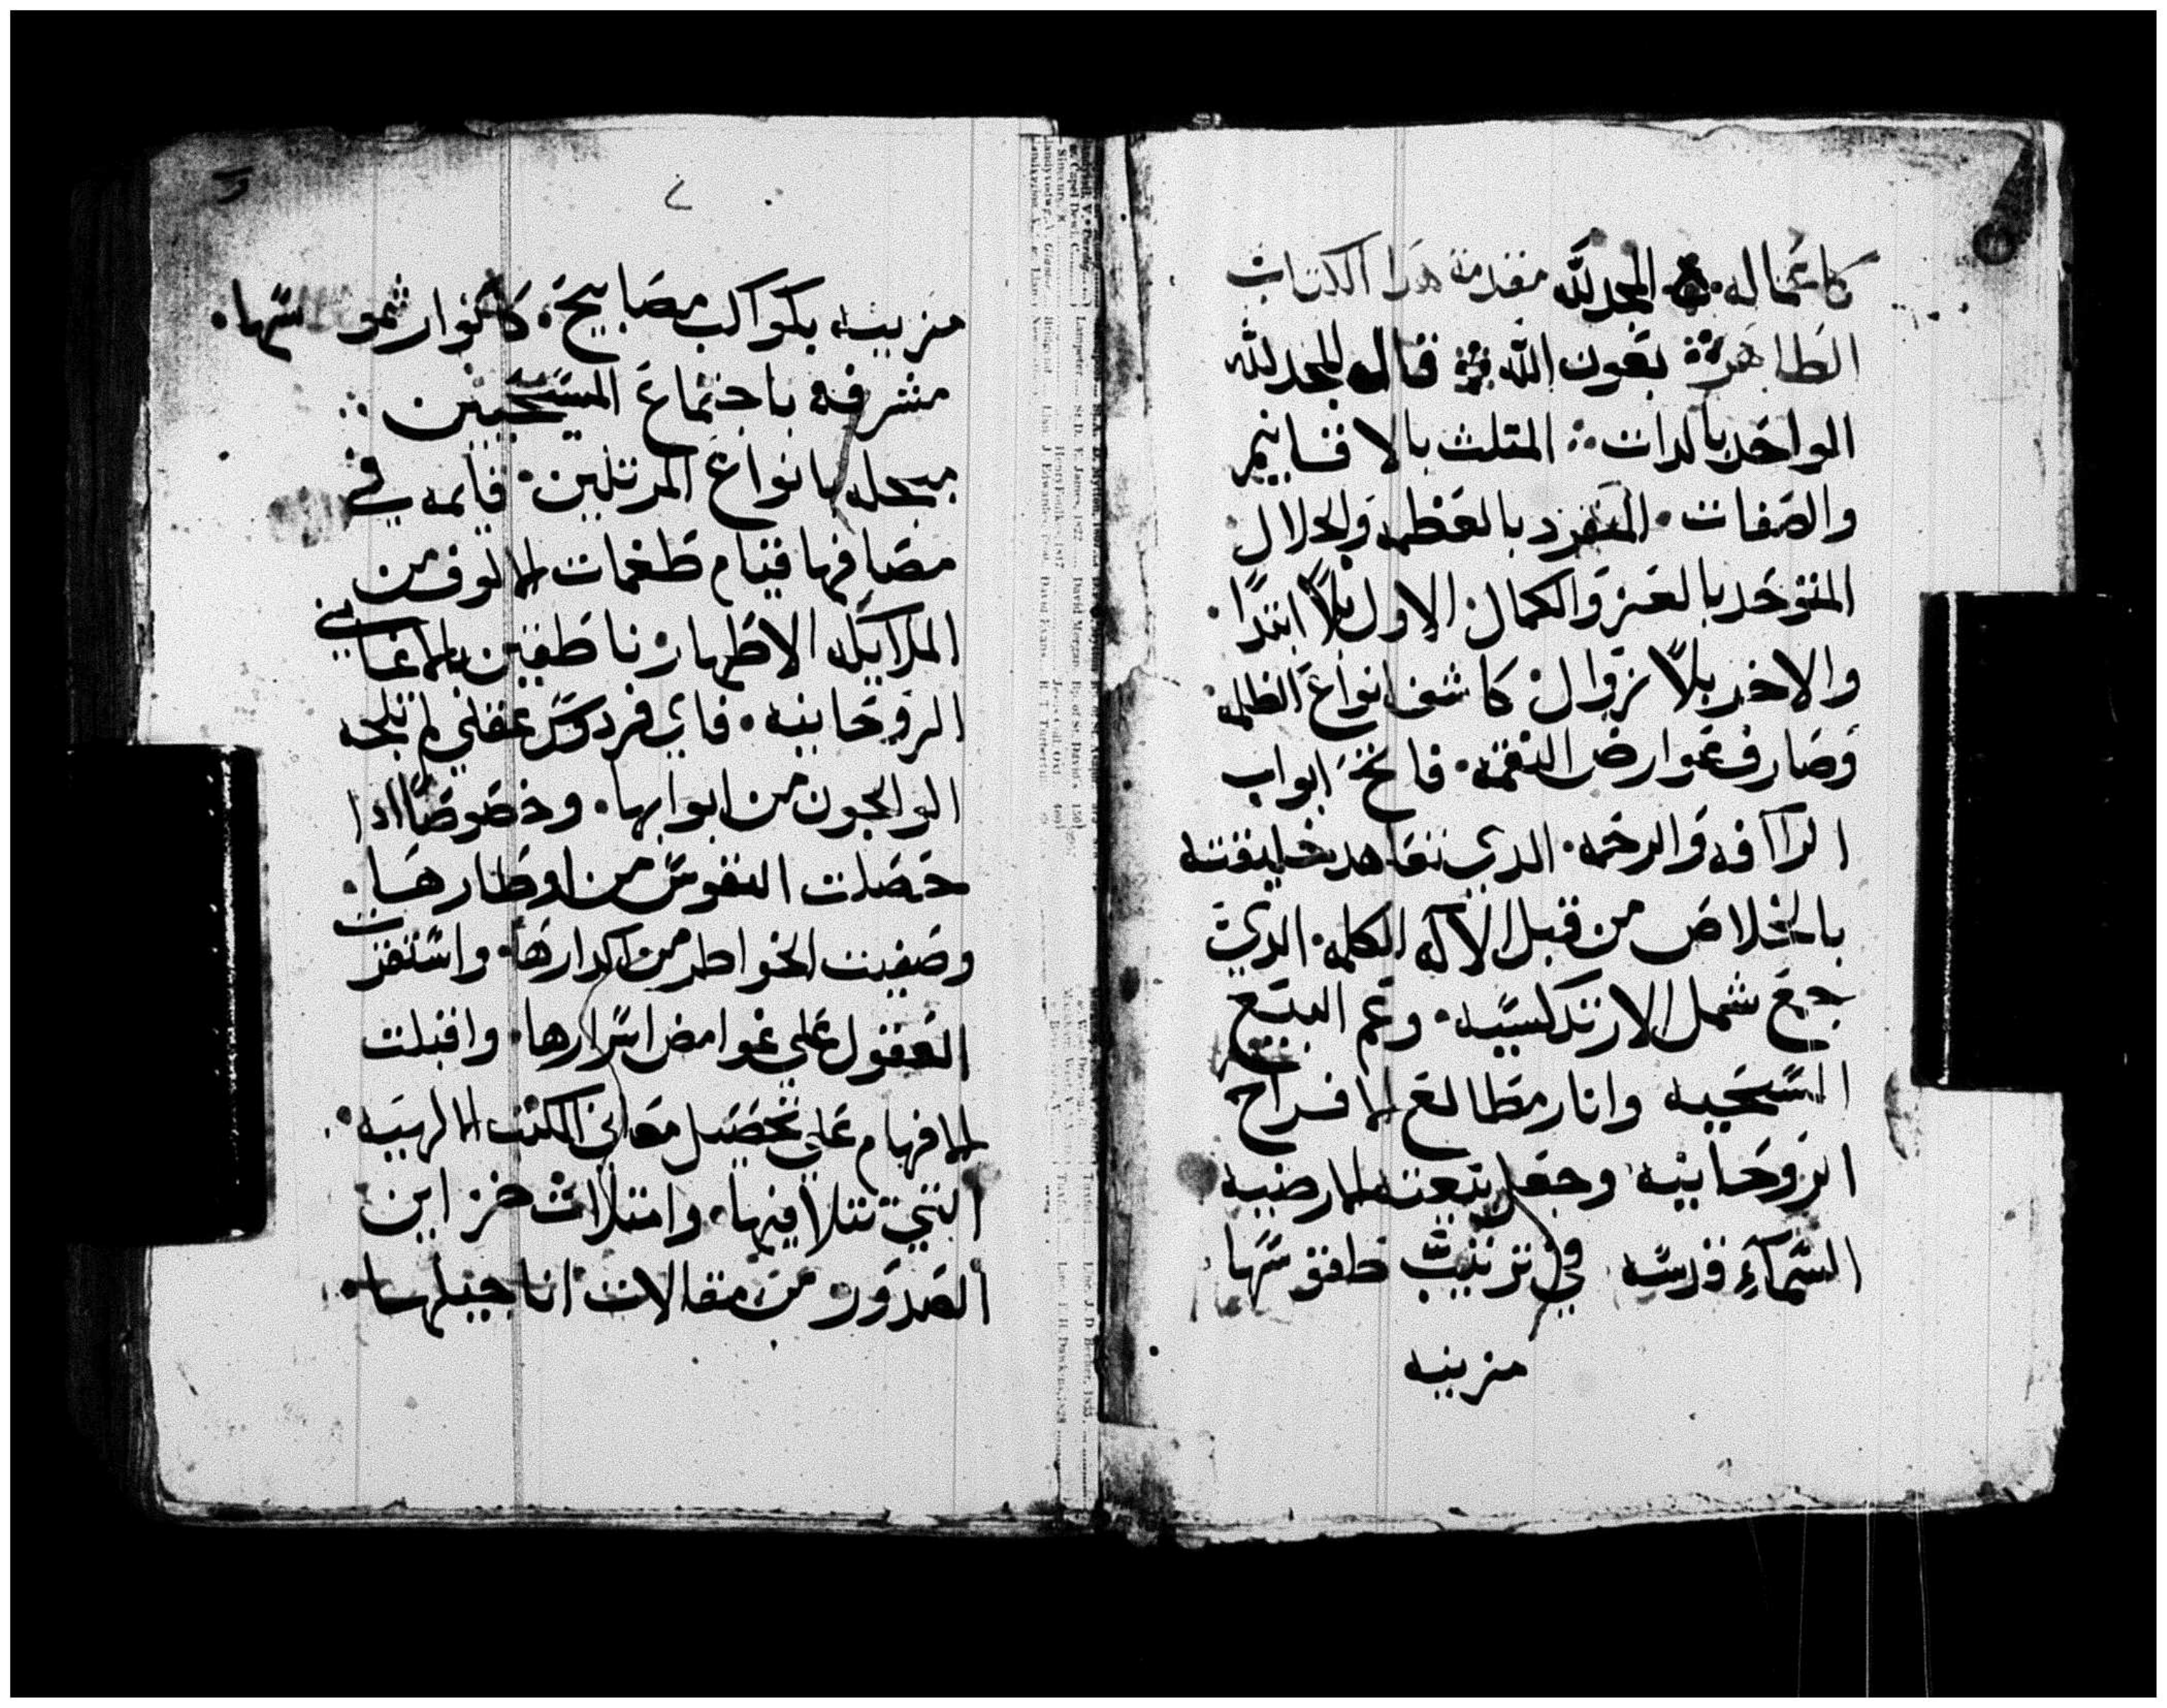 كاعماله المجد لله مقدمة هدا الكتاب
الطاهرة بعون الله قال المجد لله
الواحد بالدات المتلث بالاقانيم
والصفات المنفرد بالعظمه والجلال
المتوحد بالعز والكمال الاول بلا ابتدا
والاخر بلا زوال كاشف انواع الظلمه
وصارف عوارض النقمه فاتح ابواب
الراافه والرحمه الدي تعاهد خليقته
بالخلاص من قبل الاله الكلمه الدي
جمع شمل الارتدكسيه وعم البيع
المسيحيه وانار مطالع الافراح
الروحانيه وجعل بيعته الارضيه
السماء قدسه في ترتيب طقوسها
مزينه
مزينه بكواكب مصابيحه كانوار شموسها
مشرفه باجتماع المسيحيين
مبجله بانواع المرتلين قايمه في
مصافها قيام طغمات الالوف من
الملايكه الاطهار ناطقين بالاغاني
الروحانيه فاي فردوس عقلي لم تلجه
الوالجون من ابوابها وخصوصا ادا
حصلت النفوس من اوطارها
وصفيت الخواطر من اكدارها واستفزت
العقول علي غوامض اسرارها واقبلت
الافهام علي تحصيل معاني الكتب الالهيه
التي تتلا فيها وامتلات خزاين
الصدور من مقالات اناجيلها